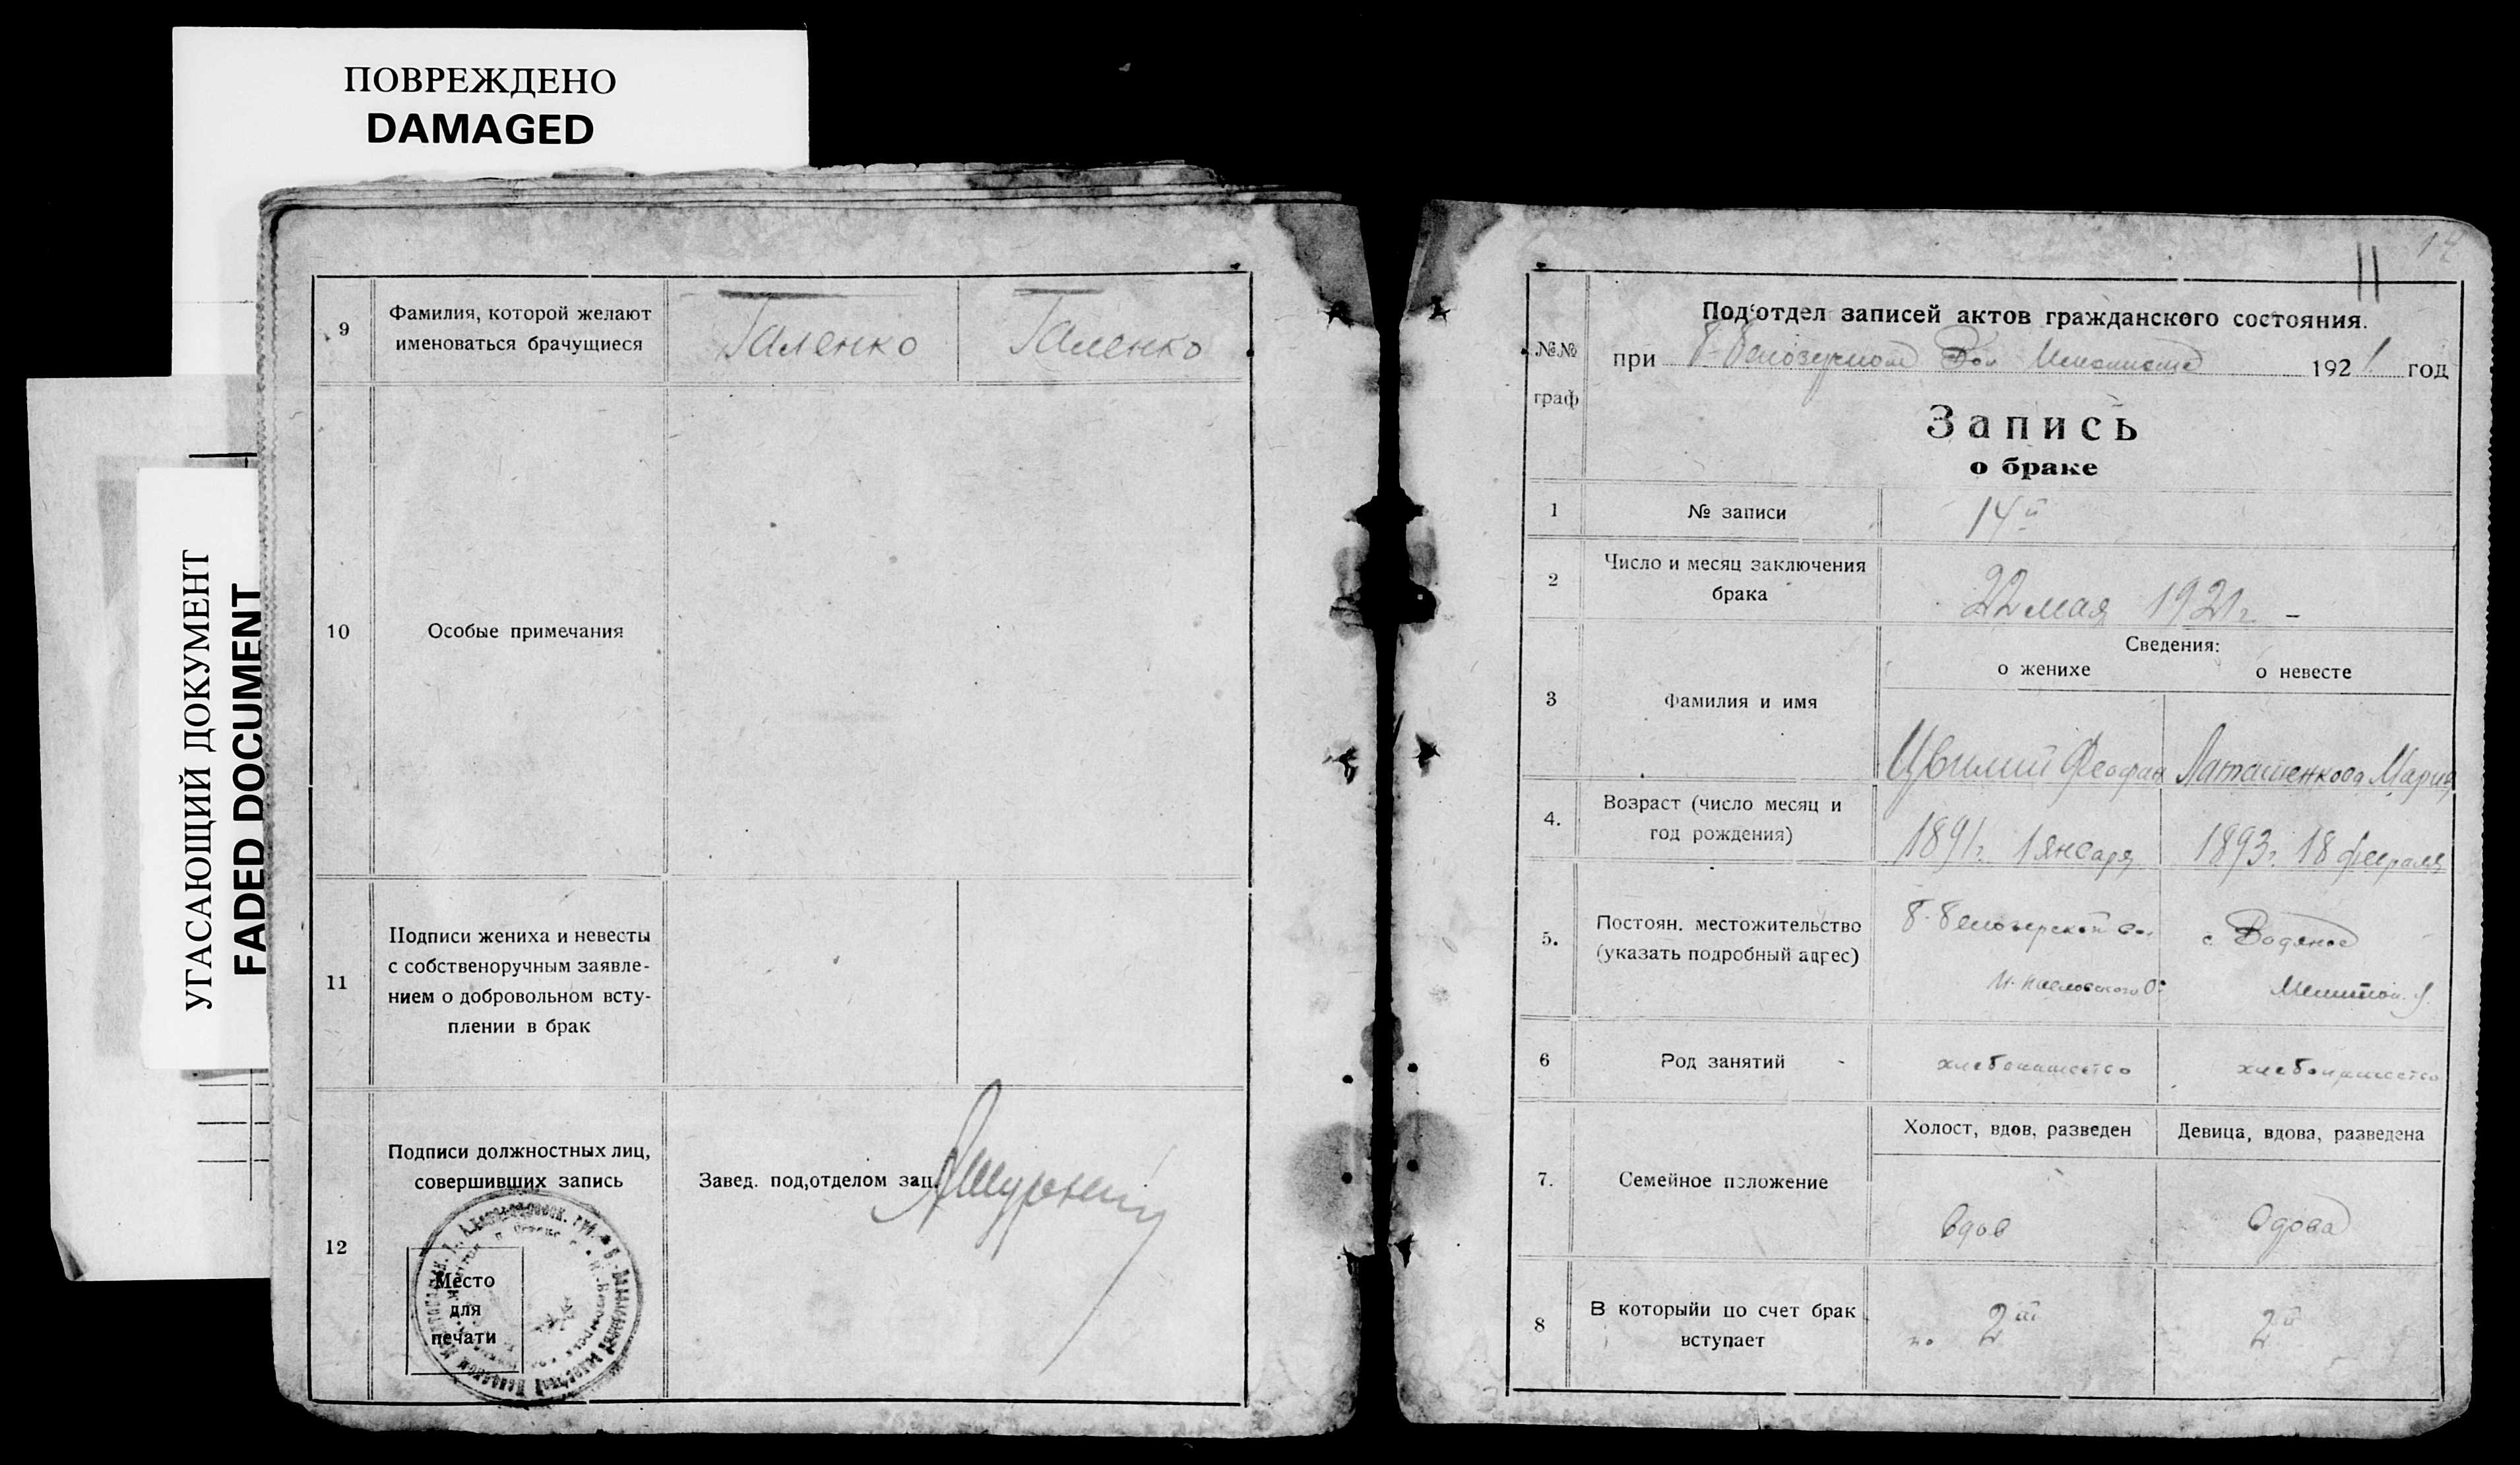 ПОВРЕЖДЕНО
DAMAGED
УГАСАЮЩИЙ ДОКУМЕНТ
FADED DOCUMENT
9
Фамилия, которой желают
именоваться брачущиеся
Галенко
Галенко
10
Особые примечания
11
Подписи жениха и невесты
с собственоручным заявле-
нием о добровольном всту-
плении в брак
12
Подписи должностных лиц,
совершивших запись
Завед. под,отделом зап.
Место
для
печати
14
11
№№
граф
Под'отдел записей актов гражданского состояния.
при Б-Белозерском Вол 1921 год
Запись
о браке
1
№ записи
14й
2
Число и месяц заключения
брака
22 мая 1921 г. -
3
Фамилия и имя
Сведения:
о женихе
о невесте
Цвилий Феофан
Латашенкова Мария
4.
Возраст (число месяц и
год рождения)
1891 г. 1 января
1893 г. 18 февраля
5.
Постоян. местожительство
(указать подробный адрес)
Б-Белозерской
с. Водяное
6
Род занятий
хлебопашество
хлебопашество
7.
Семейное положение
Холост, вдов, разведен
Девица, вдова, разведена
вдов
вдова
8
В которыйи по счет брак
вступает
во 2й
2й